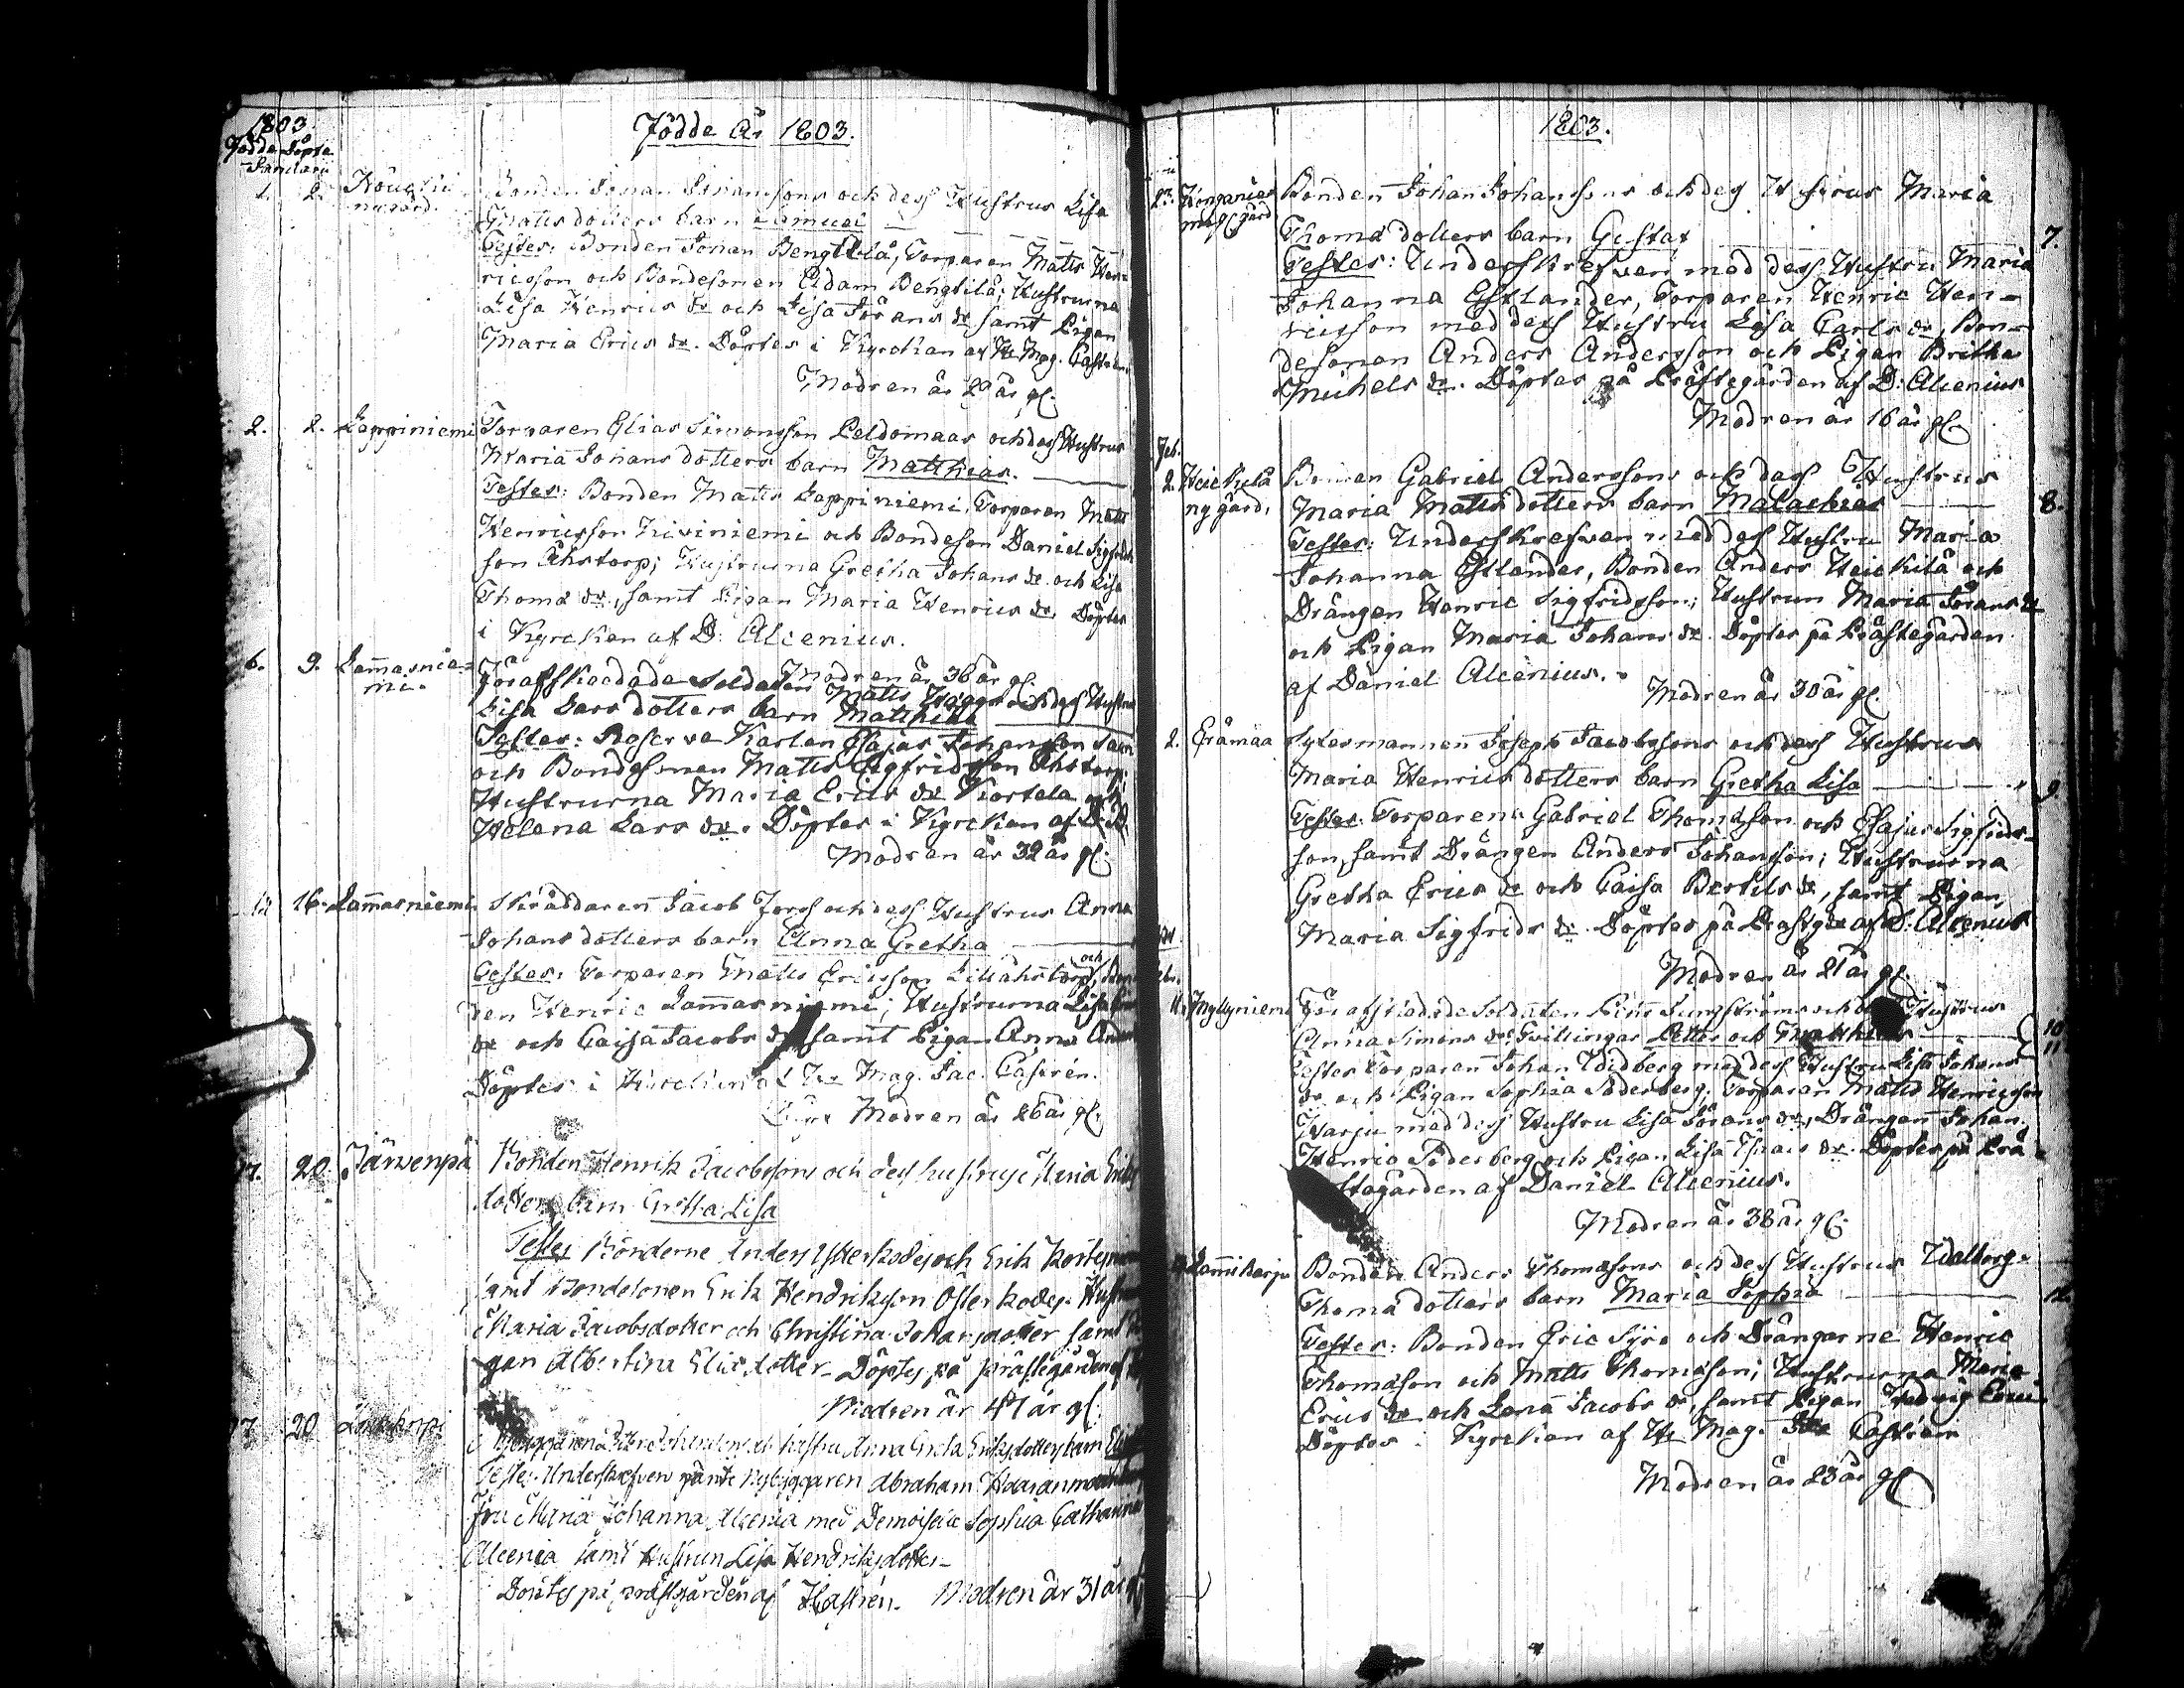 1803.
Födde Döpte
Januari
Födde År 1803.
1. 2. Bonden Johan Johanssons och dess Hustrus Lisa
nygård. Matts dotters barn Samuel
Testes: Bonden Johan Bengtilä, Torparen Matts Hen-
ricsson och Bondesonen Adam Bengtilä; Hustrurna
Lisa Henrics dr och Lisa Jörans dr samt Pigan
Maria Erics dr. Döptes i Kyrckan af Hr Mag. Castrén.
Modren är 29 år gl.
2. 2. Lappiniemi Torparen Elias Simonsson Peldomaas och dess Hustrus
Maria Johans dotters barn Matthias.
Testes: Bonden Matts Lappiniemi, Torparen Matts
Henricsson Kiviniemi och Bondeson Daniel Sigfrids
son Åhstorp; Hustrurna Gretha Johans dr och Lisa
Thomæ dr, samt Pigan Maria Henrics dr. Döptes
i Kyrckan af D: Alcenius.
Modren är 36 år gl.
6. 9. Lam̄asnie-
mi. För afskedade Soldaten Matts och dess Hustrus
Lisa Lars dotters barn Matthias
Testes: Reserve Karlen Esaias Johansson
och Bondesonen Matts Sigfridsson Åhstorp;
Hustrurna Maria Erics dr Kortela och
Helena Lars dr. Döptes i Kyrckan af D: A.
Modren är 32 år gl.
16. Lam̄asniemi Skräddaren Jacob Forss och dess Hustrus Anna
Johans dotters barn Anna Gretha
Testes: Torparen Matts Ericsson Lillåhstorp, och Bon-
den Henric Lam̄asniemi; Hustrurna Lisa
dr och Caisa Jacobs dr samt Pigan Anna
Döptes i Kyrckan af Hr Mag. Jac. Castrén.
Modren är 26 år gl.
17. 20. Järwenpä Bonden Henrik Jacobssons och dess hustrus Maria Eriks
dotters barn Gretta Lisa
Testes Bönderne Anders och Erik
samt Bondesonen Erik Hendriksson Hustrurna
Maria Jacobsdotter och Christina Johansdotter samt Pi-
gan Albertina Eliædotter. Döptes på prästegården af
Modren är 41 år gl.
17. 20 hustru Anna Greta Eriksdotters barn
Testes. Underskrefven samt nybyggaren Abraham
Fru Maria Johanna Alcenia med Demoiselle Sophia Catharina
Alcenia samt Hustrun Lisa Hendriksdotter.
Döptes på prästgården af Castrén. Modren är 31 år gl.
1803.
23. gård Bonden Johan Johanssons och dess Hustrus Maria
Thomæ dotters barn Gustaf 7.
Testes: Underskrefven med dess Hustru Maria
Johanna Estlander, Torparen Henric Hen-
ricsson med dess Hustru Lisa Carls dr, Bon-
desonen Anders Andersson och Pigan Britha
Michels dr. Döptes på Prästegården af D: Alcenius
Modren är 16 år gl.
Feb.
2. Heickilä Bonden Gabriel Anderssons och dess Hustrus
nygård. Maria Matts dotters barn Malachias 8.
Testes: Underskrefven med dess Hustru Maria
Johanna Estlander, Bonden Anders Heickilä och
Drängen Henric Sigfridsson; Hustrun Maria Jörans dr
och Pigan Maria Johans dr. Döptes på Prästegården
af Daniel Alcenius.
Modren är 30 år gl.
2. Erämaa Sytesmannen Joseph Jacobssons och dess Hustrus
Maria Henrics dotters barn Gretha Lisa 9
Testes: Torparena Gabriel Thomæson och Esajas Sigfrids-
son, samt Drängen Anders Johansson; Hustrurna
Gretha Erics dr och Caisa Bertils dr, samt Pigan
Maria Sigfrids dr. Döptes på Prästgdn af D: Alcenius
Modren är 21 år gl.
11. Myllyniemi För afskedade Soldaten Ljungströms och dess Hustrus
Anna Simons drs Tvillingar Petter och Matthias 10
11
Testes Torparen Johan Widberg med dess Hustru Lisa Johans
dr och Pigan Sophia Söderberg; Torparen Matts Henricsson
Harju med dess Hustru Lisa Jörans dr, Drängen Johan
Henric Söderberg och Pigan Lisa Thomæ dr. Döptes på Prä-
stegården af Daniel Alcenius.
Modren är 38 år gl.
Lam̄iharju Bonden Anders Thomæsons och dess Hustrus Walborg
Thomæ dotters barn Maria Sophia 12.
Testes: Bonden Eric Sÿrö och Drängarne Henric
Thomæson och Matts Thomæson; Hustrurna Maria
Erics dr och Lena Jacobs dr, samt Pigan Hedvig Erics
Döptes i Kyrckan af Hr Mag. Castrén
Modren är 23 år gl